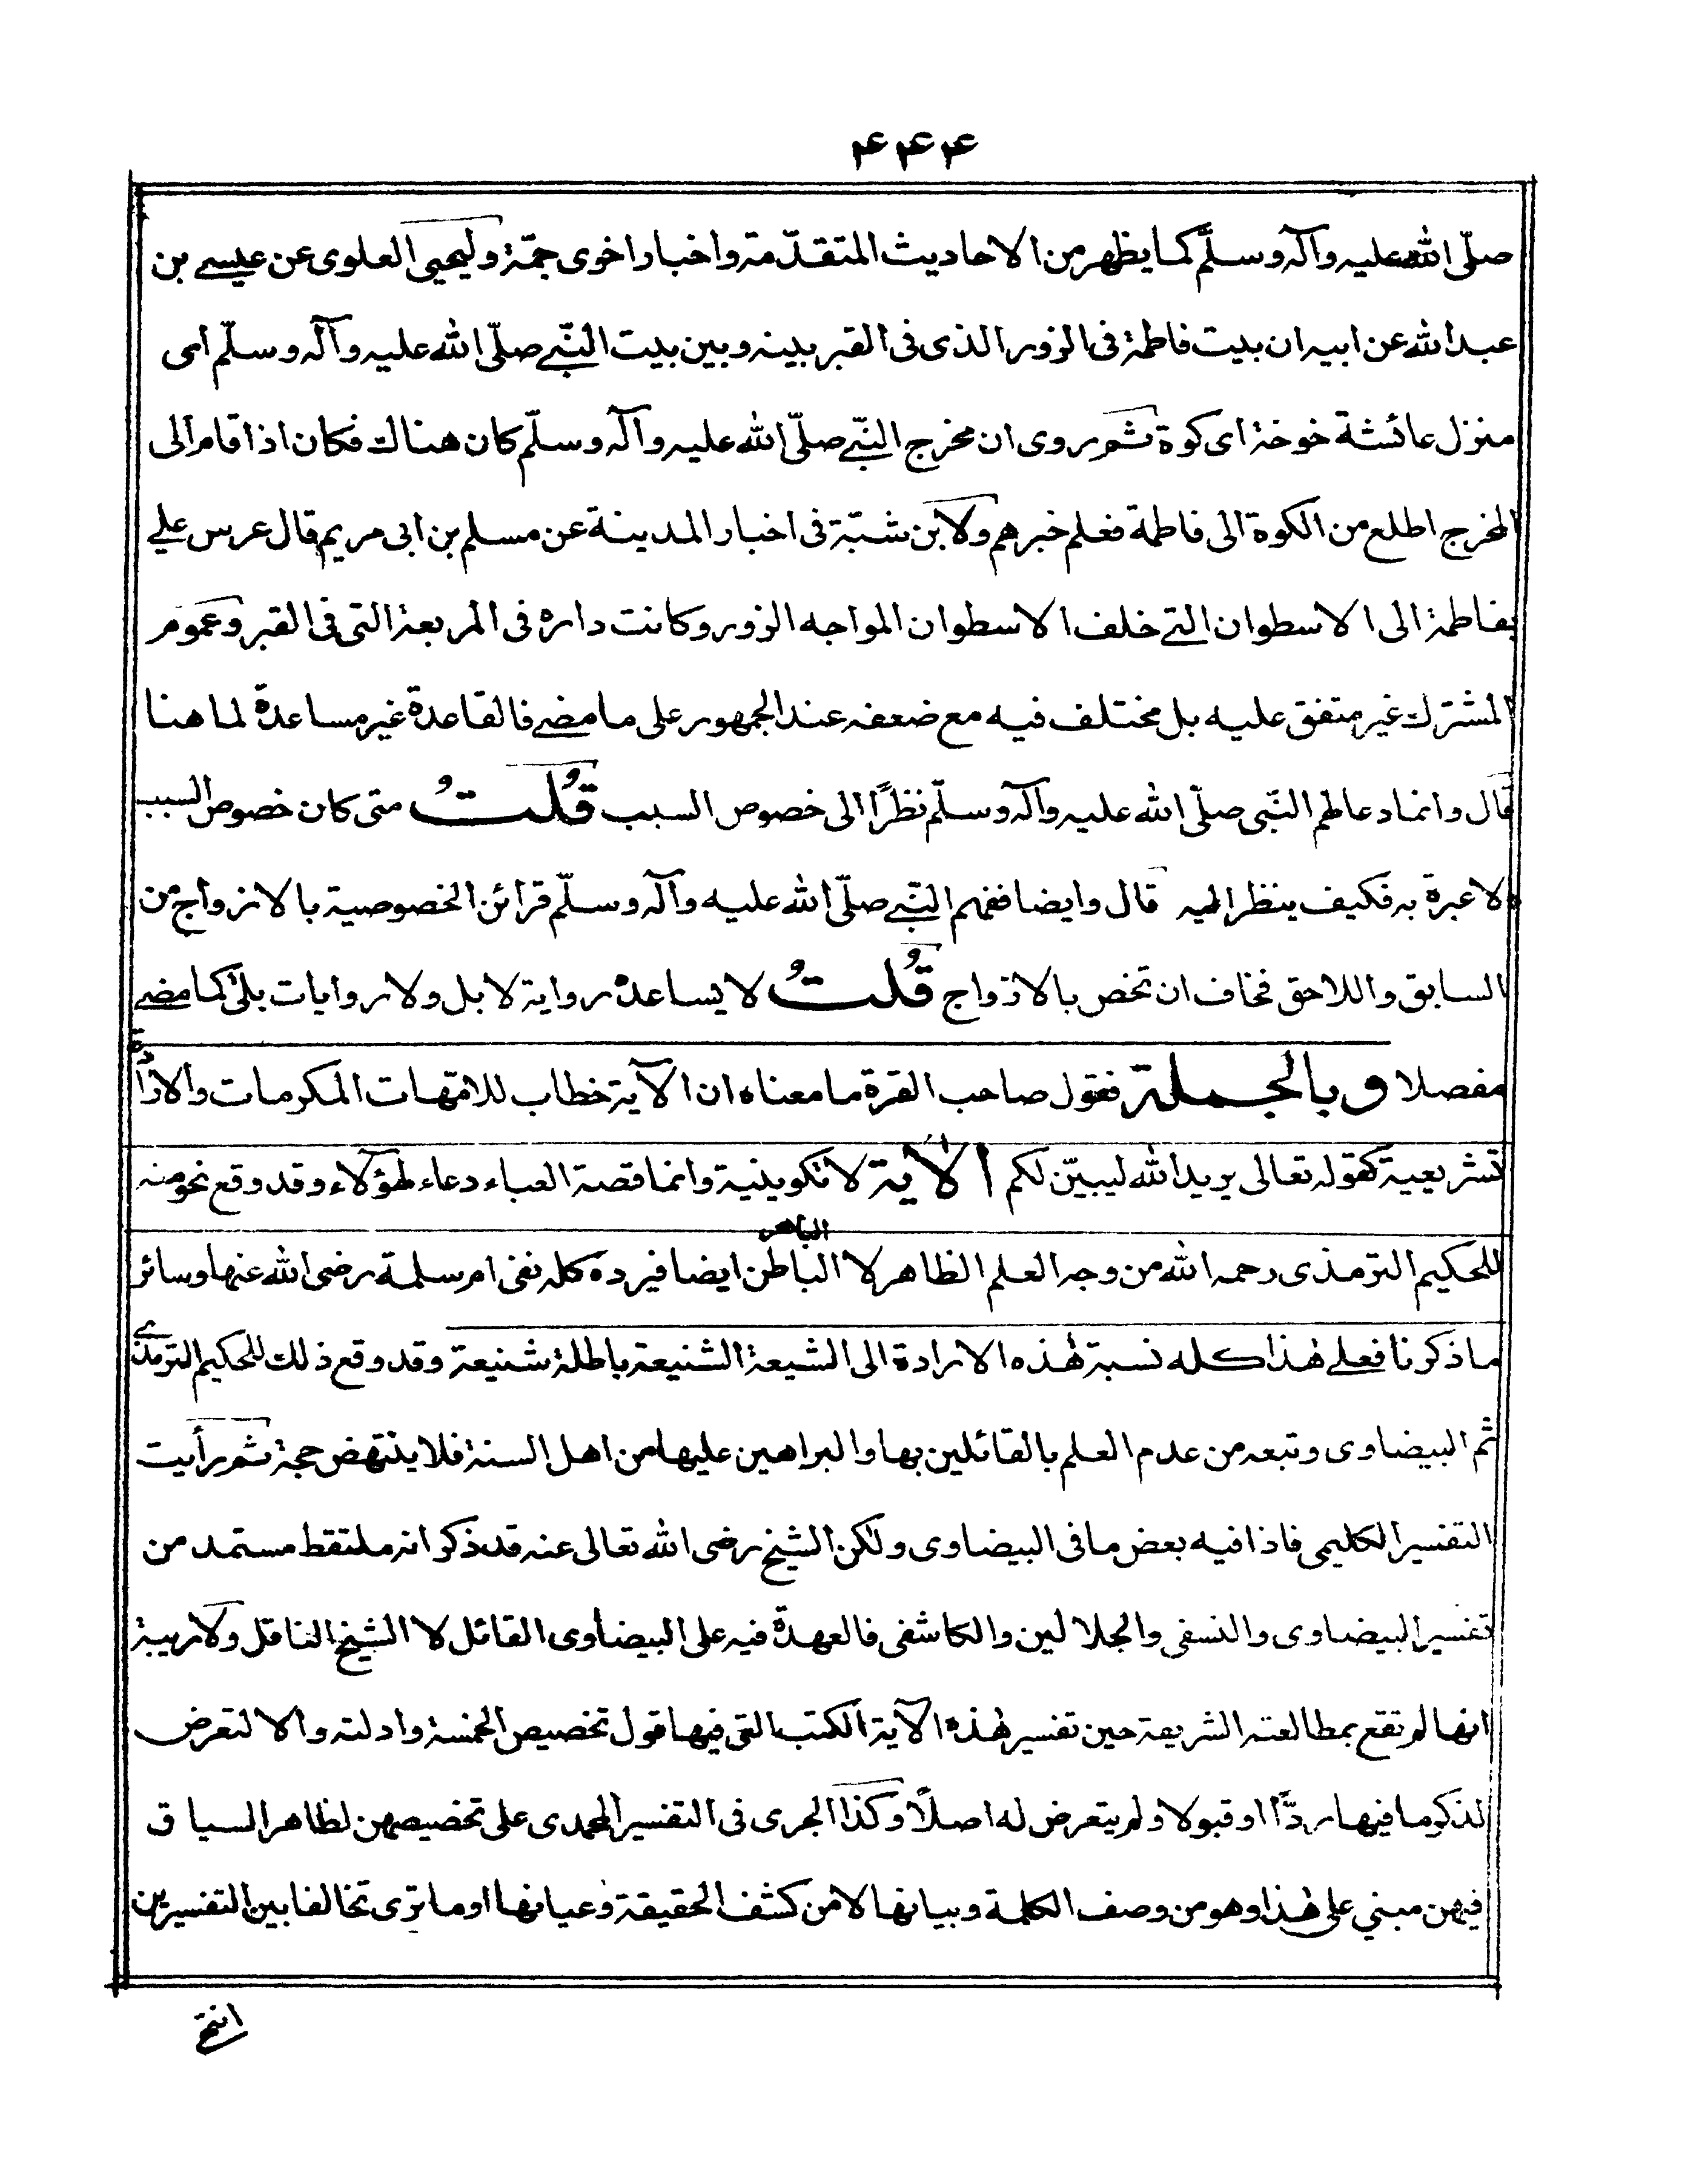 ۴۴۴
صلّى الله عليه وآله وسلّم كما يظهر من الاحاديث المتقدّمة واخبار اخرى جمّة وليحيى العلوى عن عيسے بن
عبد الله عن ابيه ان بيت فاطمة فى الزور الذى فى القبر بينه وبين بيت النّبے صلّى الله عليه وآله وسلّم اى
منزل عائشة خوخة اى كوة ثم روى ان مخرج النّبے صلّى الله عليه وآله وسلّم كان هناك فكان اذا قام الى
المخرج اطلع من الكوة الى فاطمة فعلم خبرهم ولابن شبّة فى اخبار المدينة عن مسلم بن ابى مريم قال عرس علے
بفاطمة الى الاسطوان التے خلف الاسطوان المواجه الزور وكانت داره فى المربعة التى فى القبر وعموم
المشترك غير متفق عليه بل مختلف فيه مع ضعفه عند الجمهور على ما مضے فالقاعدة غير مساعدة لما هنا
قال وانما دعا لهم النّبى صلّى الله عليه وآله وسلّم نظرًا الى خصوص السبب قُلتُ متى كان خصوص السبب
لا عبرة به فكيف ينظر اليه قال وايضا ففهم النّبے صلّى الله عليه وآله وسلّم قرائن الخصوصية بالازواج من
السابق واللاحق فخاف ان تخص بالازواج قُلتُ لا يساعده رواية لا بل ولا روايات بلى كما مضے
مفصلا وبالجملة فقول صاحب القرة ما معناه ان الآية خطاب للامّهات المكرمات والارادة
تشريعية كقوله تعالى يريد الله ليبيّن لكم الآية لا تكوينية وانما قصة العباء دعاء لهؤلاء وقد وقع نحو منه
للحكيم الترمذى رحمه الله من وجه العلم الظاهر لا الباطن الباهر ايضا فيرده كله نفى ام سلمة رضى الله عنها وسائر
ما ذكرنا فعلے هٰذا كله نسبة هٰذه الارادة الى الشيعة الشنيعة باطلة شنيعة وقد وقع ذلك للحكيم الترمذے
ثم البيضاوى وتبعه من عدم العلم بالقائلين بها والبراهين عليها من اهل السنة فلا ينتهض حجة ثم رأيت
التفسير الكليمى فاذا فيه بعض ما فى البيضاوى ولٰكن الشيخ رضى الله تعالى عنه قد ذكر انه ملتقط مستمد من
تفسير البيضاوى والنسفى والجلالين والكاشفى فالعهدة فيه على البيضاوى القائل لا الشيخ الناقل ولا ريبة
انها لم تقع بمطالعته الشريفة حين تفسير هٰذه الآية الكتب التى فيها قول تخصيص الخمسة وادلته والا لتعرض
لذكر ما فيها ردًّا او قبولا ولم يتعرض له اصلًا وكذا الجرى فى التفسير المحمدى على تخصيصهن لظاهر السياق
فيهن مبني على هٰذا وهو من وصف الكلمة وبيانها لا من كشف الحقيقة وعيانها او ما ترى تخالفا بين التفسيرين
انتهى